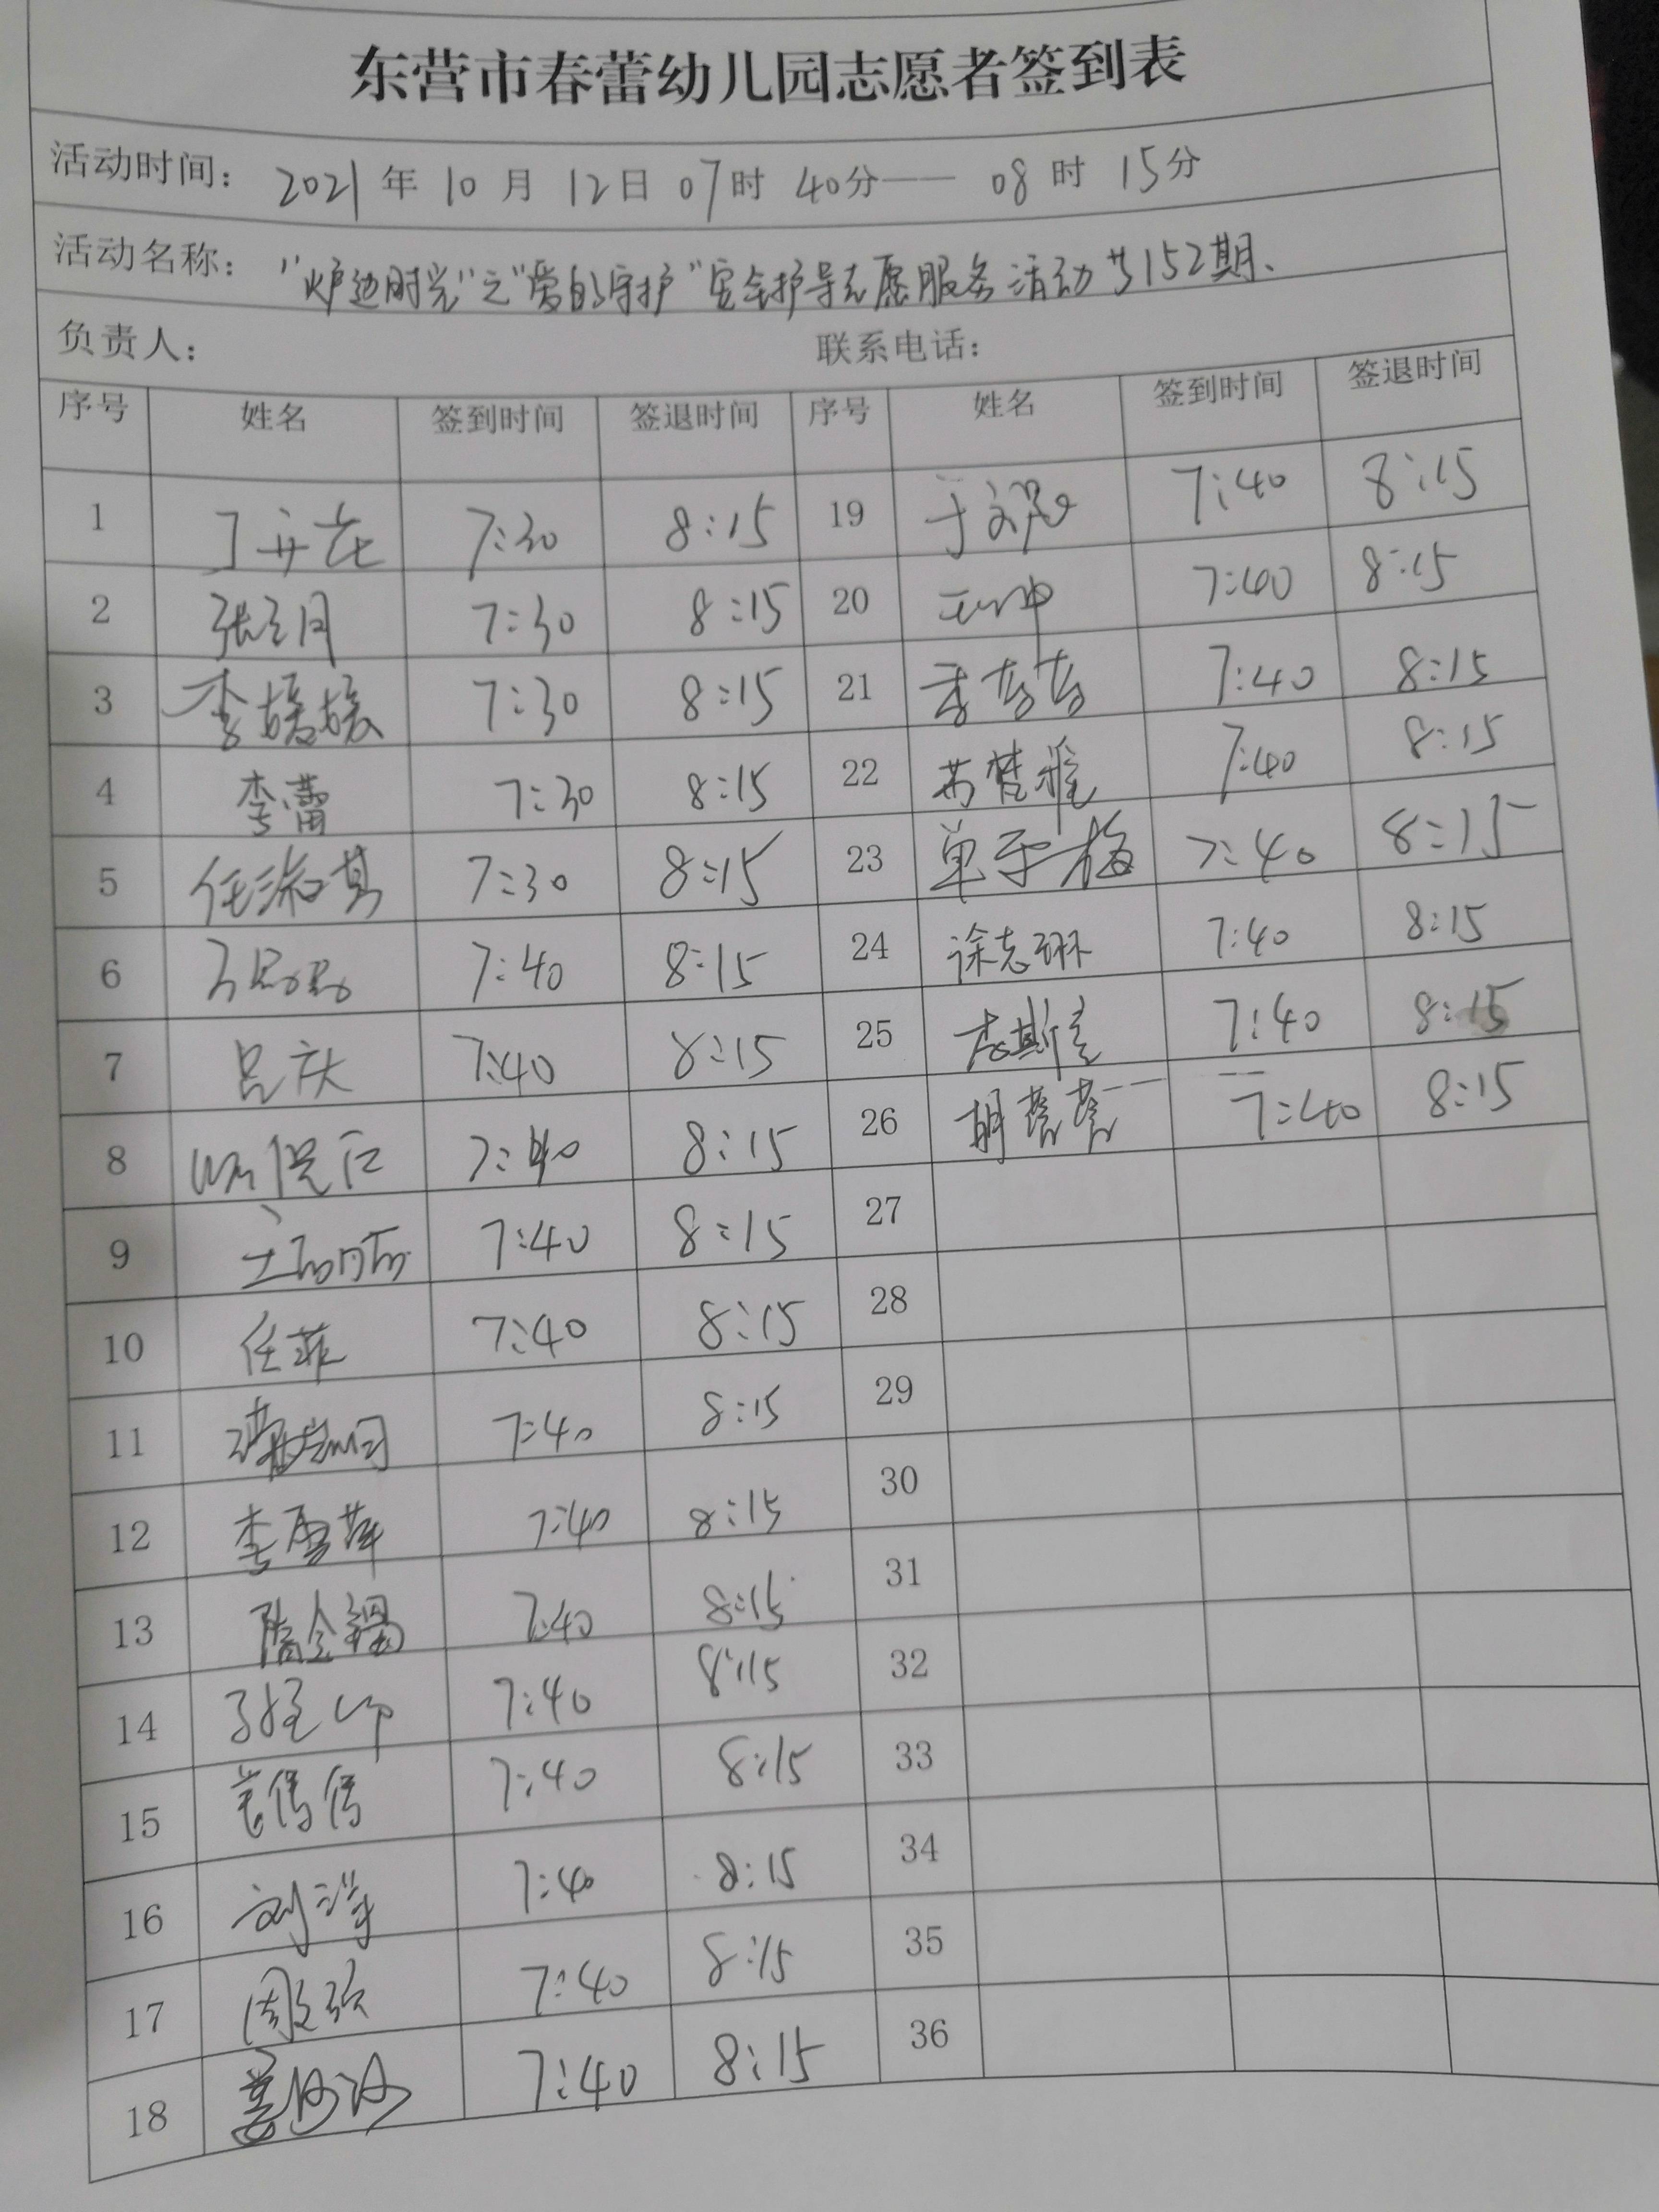 东营市春蕾幼儿园志愿者签到表
活动时间： 2021 年 10 月 12日 07时 40分—— 08 时 15分
活动名称： “炉边时光”之“爱的守护”安全护导志愿服务活动 152期、
负责人： 联系电话：
序号 姓名 签到时间 签退时间 序号 姓名 签到时间 签退时间
1 7:30 8:15 19 7:40 8:15
2 7:30 8:15 20 7:40 8:15
3 李媛媛 7:30 8:15 21 7:40 8:15
4 李蕾 7:30 8:15 22 苏楚雅 7:40 8:15
5 任淑其 7:30 8:15 23 单于梅 7:40 8:15
6 7:40 8:15 24 徐志琳 7:40 8:15
7 吕庆 7:40 8:15 25 7:40 8:15
8 7:40 8:15 26 7:40 8:15
9 7:40 8:15 27
10 任菲 7:40 8:15 28
11 7:40 8:15 29
12 李雪萍 7:40 8:15 30
13 7:40 8:15 31
14 7:40 8:15 32
15 7:40 8:15 33
16 刘洋 7:40 8:15 34
17 7:40 8:15 35
18 7:40 8:15 36